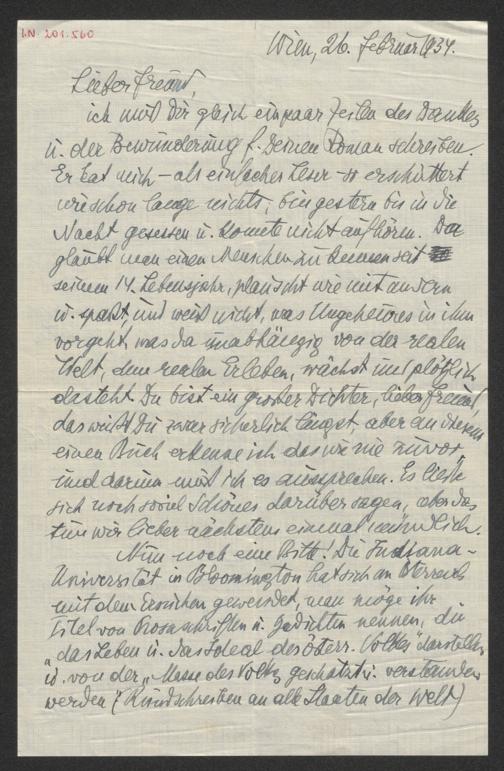 I.N. 201.560
Wien, 26. Februar 1934.
Lieber Freund,
ich muß Dir gleich ein paar Zeilen des Dankes
u. der Bewunderung f. Deinen Roman schreiben.
Er hat mich – als einfacher Leser – so erschüttert
wie schon lange nichts; bin gestern bis in die
Nacht gesessen u. konnte nicht aufhören. Da
glaubt man einen Menschen zu kennen seit
seinem 14. Lebensjahr, plauscht wie mit andern
u. spaßt, und weiß nicht, was Ungeheures in ihm
vorgeht, was da unabhängig von der realen
Welt, dem realen Erleben, wächst und plötzlich
dasteht. Du bist ein großer Dichter, lieber Freund,
das weißt Du zwar sicherlich längst, aber an diesem
einen Buch erkenne ich das wie nie zuvor
und darum muß ich es aussprechen. Es ließe
sich noch soviel Schönes darüber sagen, aber das
tun wir lieber nächstens einmal mündlich.
Nun noch eine Bitte! Die Indiana-
Universität in Bloomington hat sich an Österreich
mit dem Ersuchen gewendet, man möge ihr
Titel von Prosaschriften u. Gedichten nennen, die
„das Leben u. das Ideal des österr. Volkes" darstellen
u. von der „Masse des Volks geschätzt u. verstanden
werden" (Rundschreiben an alle Staaten der Welt)